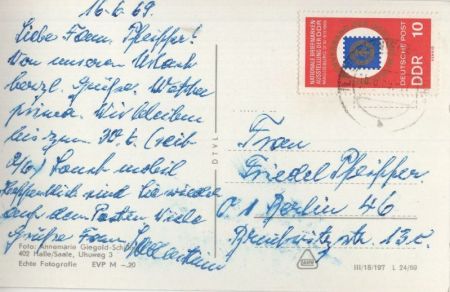 16.6.69.
Liebe Fam. Pfeiffer!
Von unserem Urlaub
herzl. Grüße. Wetter
prima. Wir bleiben
bis zum 30.6. (seit
Sonst mobil
Hoffentlich sind Sie wieder
auf dem Posten. Viele
Grüße Fam.
Foto: Annemarie Giegold-Schilling
402 Halle/Saale, Uhuweg 3
Echte Fotografie EVP M -.20
DTVL
NATIONALE BRIEFMARKEN
AUSSTELLUNG DER DDR
DEUTSCHE POST
DDR 10
Frau
Friedel Pfeiffer
Berlin 46
str. 13c.
III/18/197 L 24/69